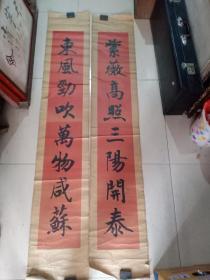 紫薇高照三陽開泰
東風勁吹萬物咸蘇